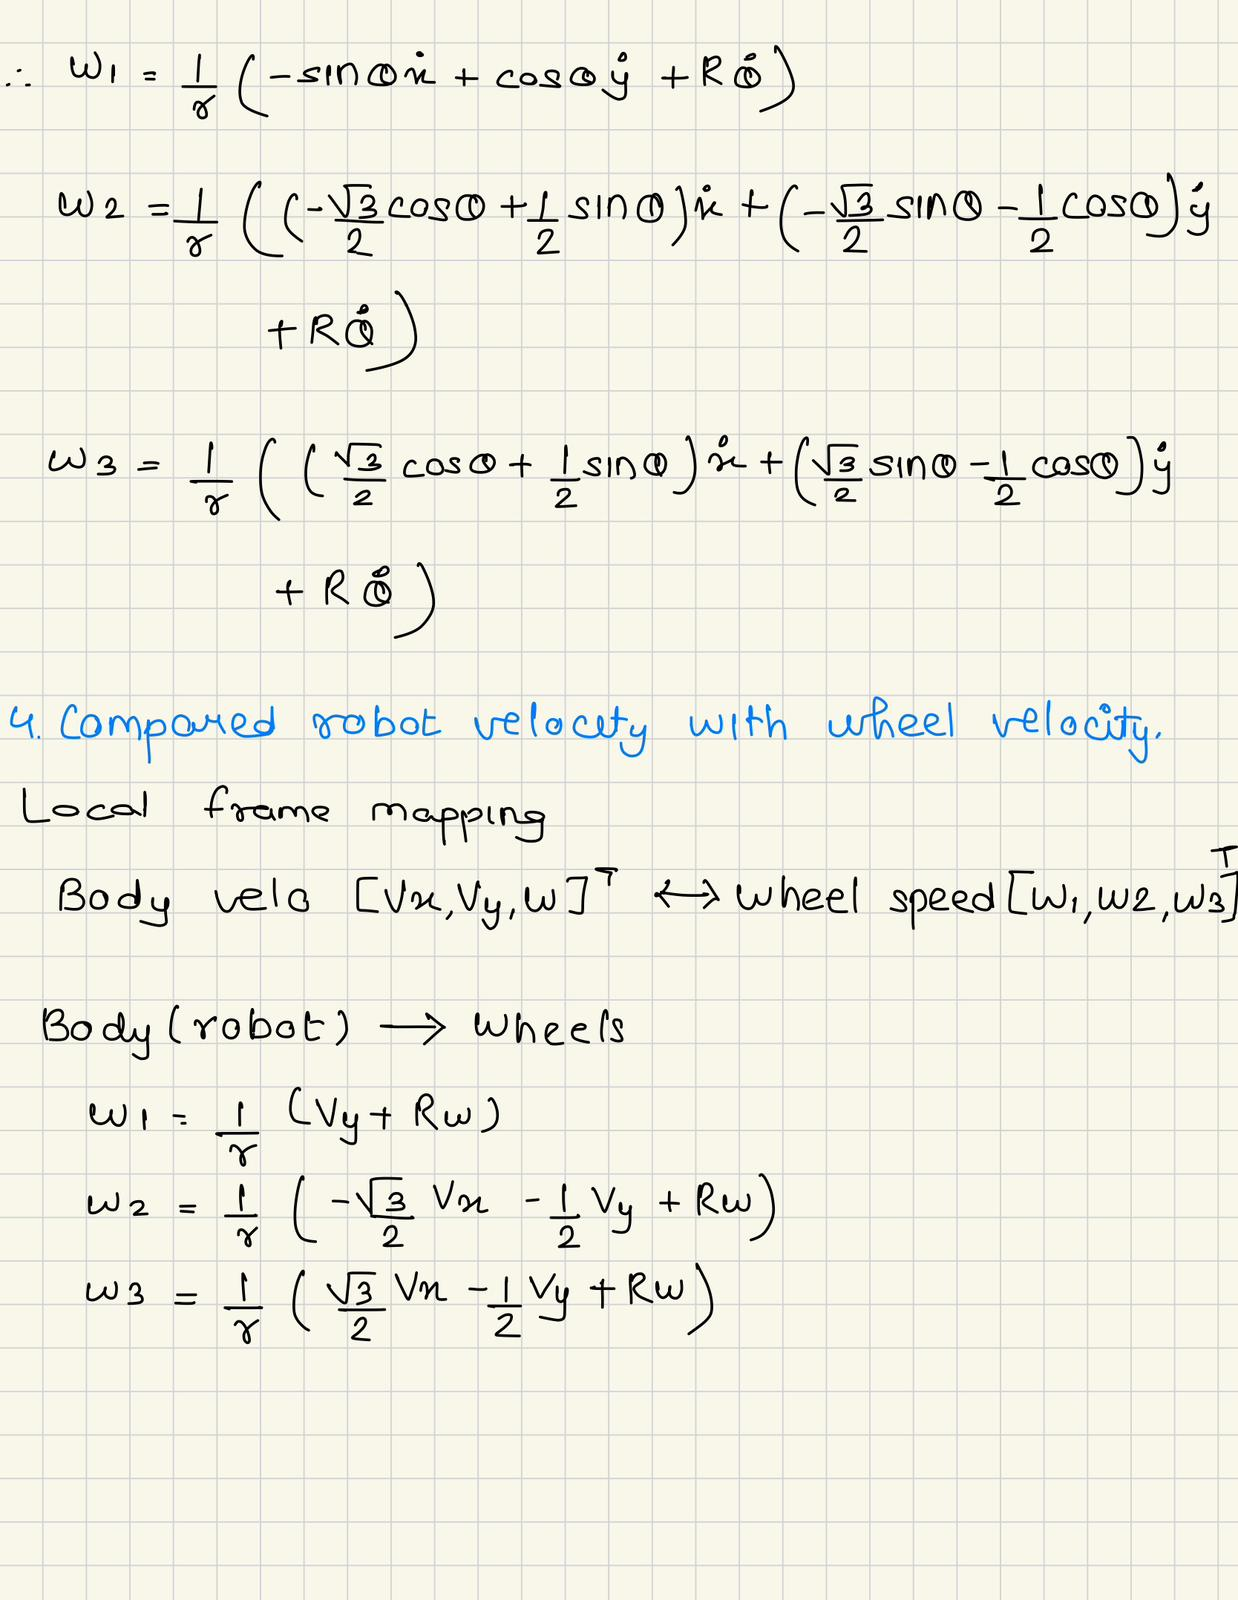 ∴ ω1 = 1/r (-sinθẋ + cosθẏ + Rθ̇)
ω2 = 1/r ((-√3/2 cosθ + 1/2 sinθ)ẋ + (-√3/2 sinθ - 1/2 cosθ)ẏ
+ Rθ̇)
ω3 = 1/r ((√3/2 cosθ + 1/2 sinθ)ẋ + (√3/2 sinθ - 1/2 cosθ)ẏ
+ Rθ̇)
4. Compared robot velocity with wheel velocity.
Local frame mapping
Body velo [Vx, Vy, ω]ᵀ ↔ wheel speed [ω1, ω2, ω3]ᵀ
Body (robot) → wheels
ω1 = 1/r (Vy + Rω)
ω2 = 1/r (-√3/2 Vx - 1/2 Vy + Rω)
ω3 = 1/r (√3/2 Vx - 1/2 Vy + Rω)